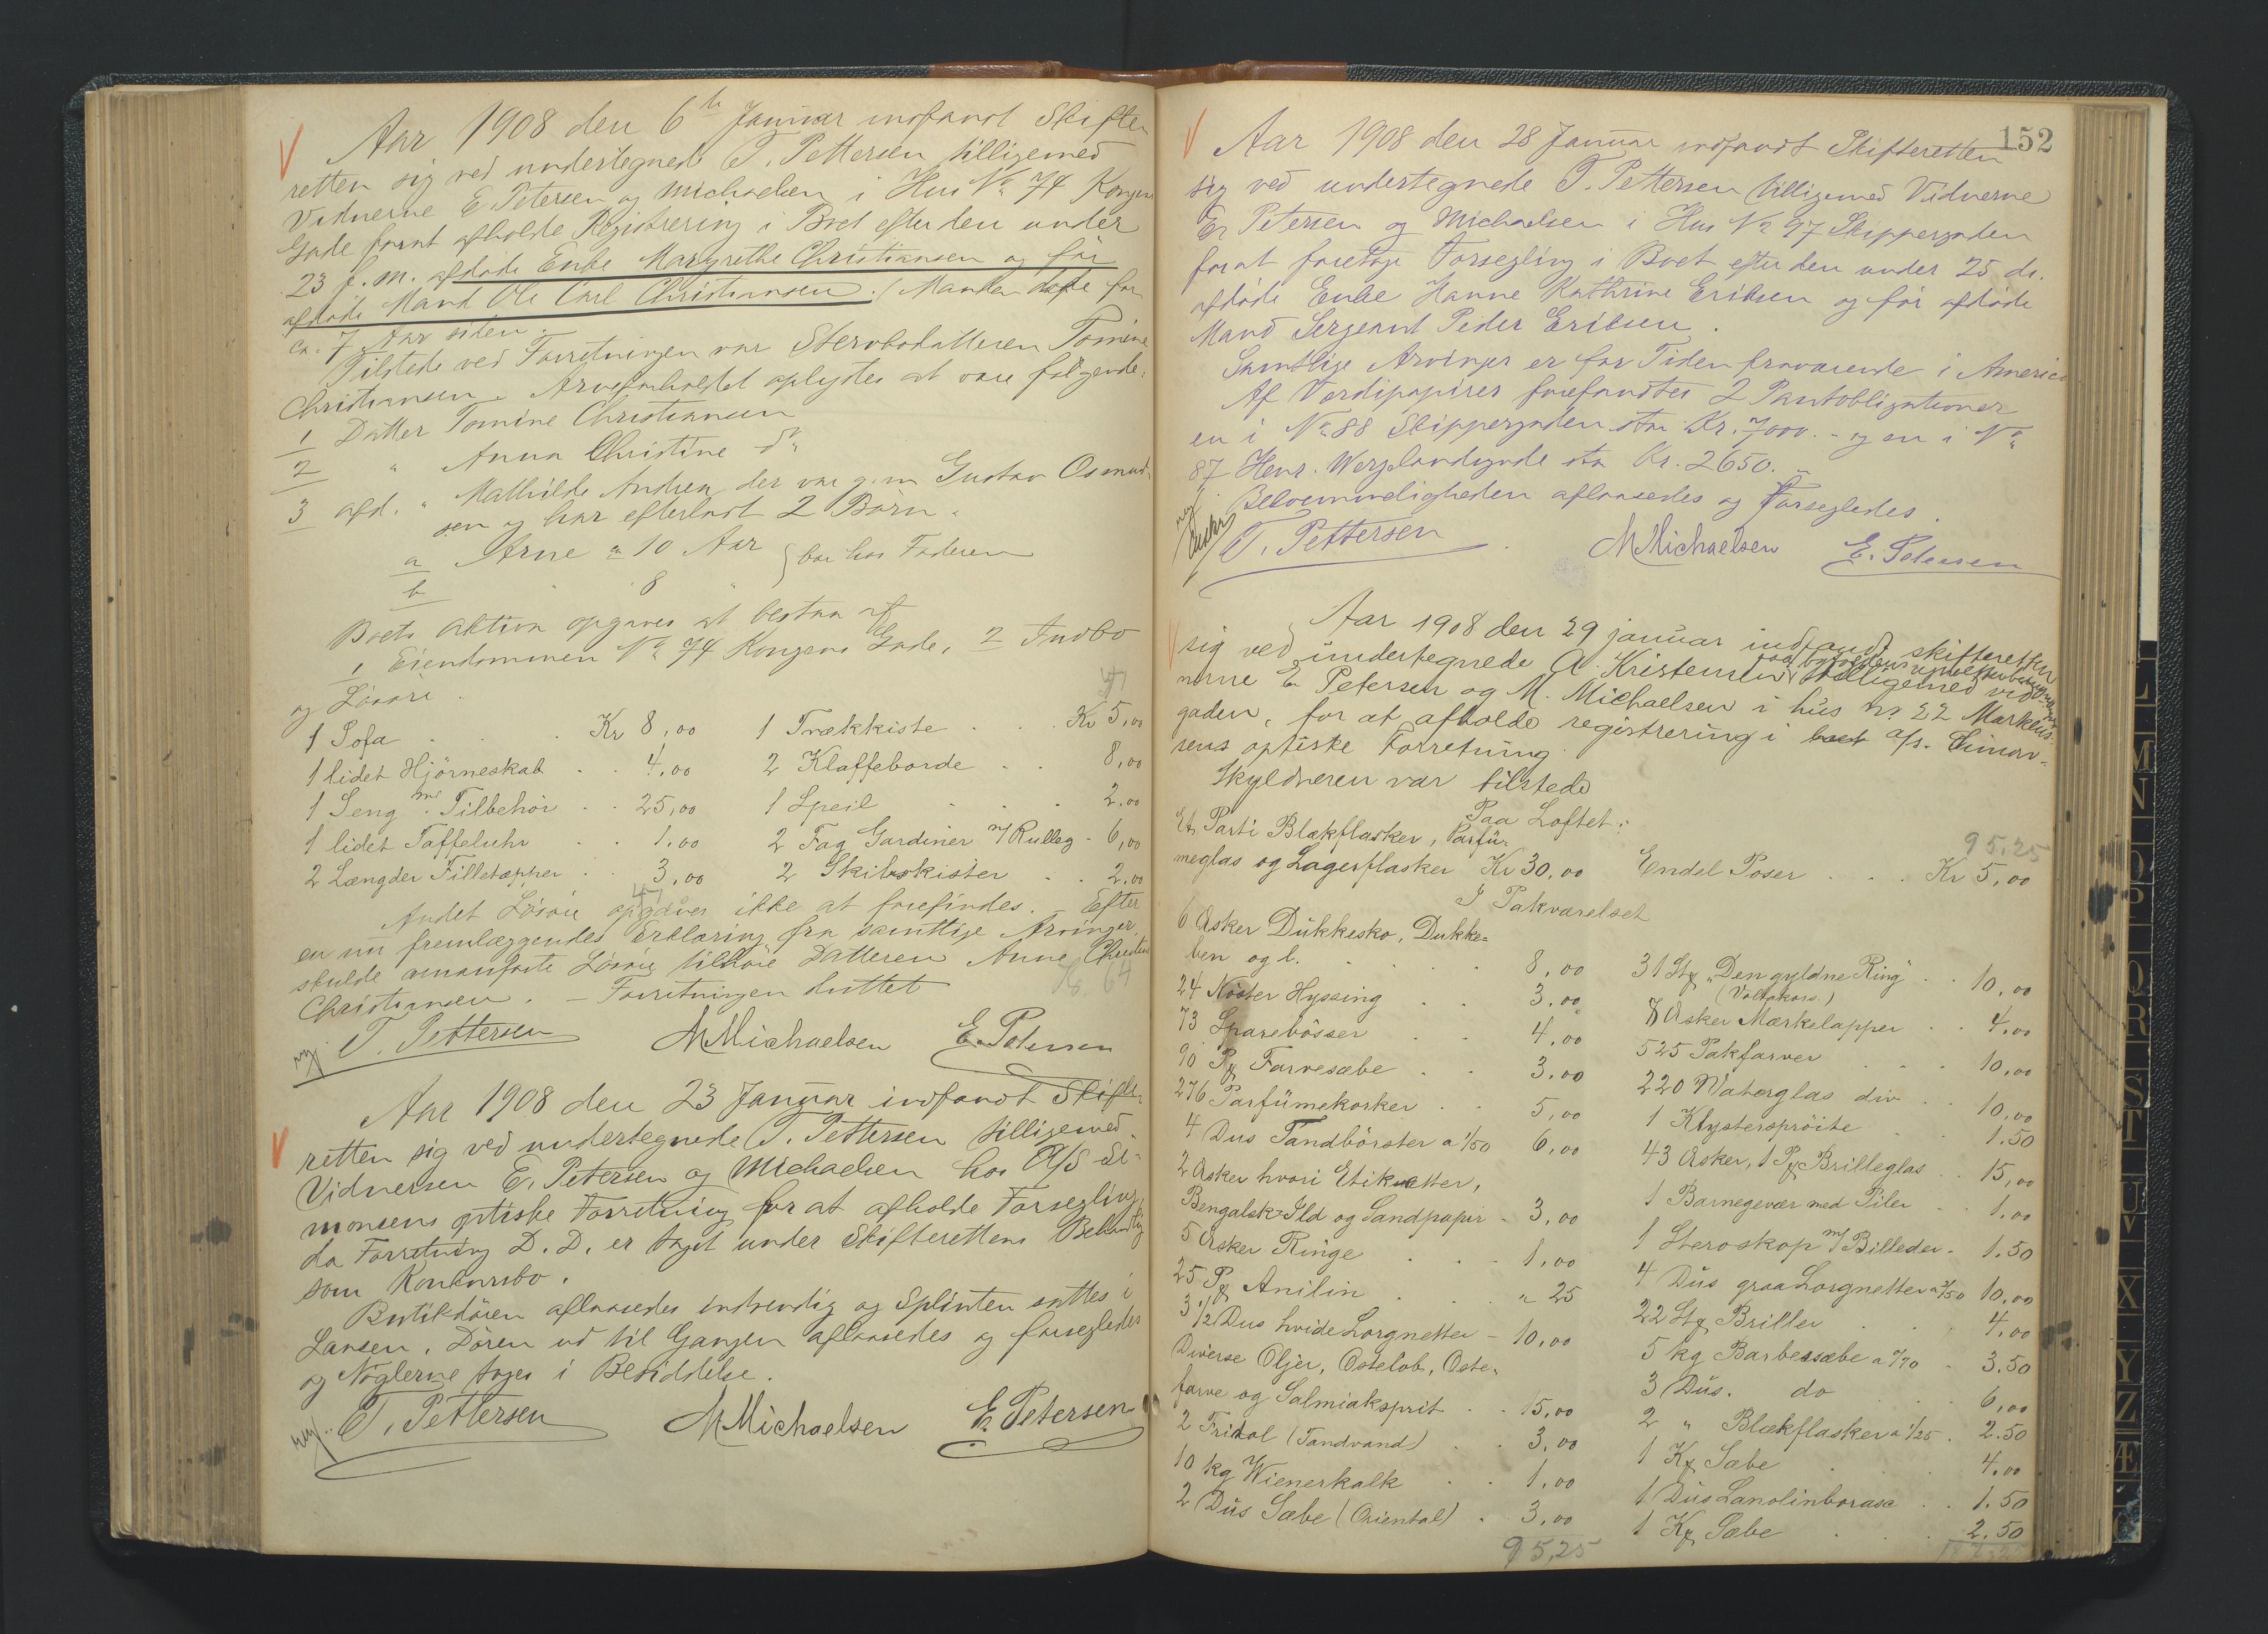 Aar 1908 den 6te Januar indfandt Skifte
retten sig ved undertegnede T. Pettersen tilligemed
Vidnerne E Petersen og Michaelsen i Hus No 74 Kongens
Gade forat afholde Registrering i Boet efter den under
23 f. M. afdøde Enke Margrethe Christiansen og før
afdøde Mand Ole Carl Christiansen. (Manden døde for
ca. 7 Aar siden.
Tilstede ved Forretningen var Stervbodatteren Tomine
Christiansen. Arveforholdet oplystes at være følgende:
1 Datter Tomine Christiansen
2 " Anna Christine do
3 afd. " Mathilde Andrea der var g. m Gustav Osmund-
sen og har efterladt 2 Børn.
a Arne ca 10 Aar } bor hos Faderen
b " 8 "
Boets Aktiva opgaves at bestaa af
1 Eiendommen No 74 Kongens Gade, 2 Indbo
og Løsøre.
1 Sofa . . . Kr 8,00
1 lidet Hjörneskab . . 4,00
1 Seng m/ Tilbehör . . 25,00
1 lidet Taffeluhr . . 1.00
2 Længder Filletæpper . . 3,00
47
1 Trækkiste . . . Kr 5,00
2 Klaffeborde . . 8,00
1 Speil . . . 2.00
2 Fag Gardiner m/ Rulleg - 6,00
2 Skibskister . . 2,00
41
Andet Løsøre opgaves ikke at forefindes. - Efter
en nu fremlæggendes Erklæring fra samtlige Arvinger,
skulde ovenanførte Løsøre tilhøre Datteren Anne Christine
Christiansen. - Forretningen sluttet
T. Pettersen MMichaelsen E. Petersen
Aar 1908 den 23 Januar indfandt Skifte-
retten sig ved undertegnede T. Pettersen tilligemed
Vidnersen E. Petersen og Michaelsen hos A/S Si-
monsens optiske Forretning for at afholde Forsegling,
da Forretning D. D. er taget under Skifterettens Behandlig
som Konkursbo.
Butikdøren aflaasedes indvendig og Splinten sattes i
Laasen. Døren ud til Gangen aflaasedes og forsegledes
og Nøglerne toges i Besiddelse.
T. Pettersen MMichaelsen E. Petersen
152
Aar 1908 den 28 Januar indfandt Skifteretten
sig ved undertegnede T. Pettersen tilligemed Vidnerne
E. Petersen og Michaelsen i Hus No 97 Skippergaden
forat foretage Forsegling i Boet efter den under 25 ds.
afdøde Enke Hanne Kathrine Eriksen og før afdøde
Mand Sergeant Peder Eriksen.
Samtlige Arvinger er for Tiden fraværende i America
Af Værdipapirer forefandtes 2 Pantobligationer
en i No 88 Skippergaden stor Kr. 7000. - og en i No
87 Henr. Wergelandsgade stor Kr. 2650. -
Bekvemmeligheden aflaasedes og Forsegledes.
T. Pettersen MMichaelsen E. Petersen
Aar 1908 den 29 januar indfandt skifteretten
sig ved undertegnede A. Kristensen tilligemed vid-
nerne E. Petersen og M. Michaelsen i hus no 22 Markens-
gaden, for at afholde registrering i boet a/s. Simon-
sens optiske Forretning.
Skyldneren var tilstede
Paa Loftet:
Et Parti Blækflasker, Parfü-
meglas og Lagerflasker Kr 30,00
95,25
Endel Poser . . . Kr 5,00
I Pakværelset
6 Æsker Dükkesko, Dukke-
ben og l. . . . 8,00
24 Nöster Hyssing . . 3,00
73 Sparebösser . . 4,00
90 Pk Farvesæbe . . 3.00
276 Parfümekorker . . 5,00
4 Dus Tandbörster a 1/50 6,00
2 Æsker hvori Etiketter,
Bengalsk-Ild og Sandpapir - 3,00
5 Æsker Ringe . . . 1,00
25 Pk Anilin . . . " 25
3 1/2 Dus hvide Lorgnetter - 10,00
Diverse Oljer, Osteløb, Oste-
farve og Salmiaksprit . . 15,00
2 Tridol (Tandvand) . . 3,00
10 kg Wienerkalk . . 1.00
2 Düs Sæbe (Oriental) . 3,00
95,25
31 Stk "Den gyldne Ring" . . 10,00
(Voltakors.)
7 Æsker Mærkelapper . . 4.00
525 Pakfarver . . . 10,00
220 Waterglas div . . 10,00
1 Klystersprøite . . 1.50
43 Æsker, 1 Pk Brilleglas . . 15,00
1 Barnegevær med Piler . . 1.00
1 Steroskop m/ Billeder - 1.50
4 Düs graa Lorgnetter a 2/50 10,00
22 Stk Briller . . . 4.00
5 kg Barbersæbe a 0/70 - 3.50
3 Düs. do . . . 6,00
2 " Blækflasker a 1/25 . 2.50
1 Ks Sæbe . . . 4.00
1 Düs Lanolinborax . . 1.50
1 Ks Sæbe . . . 2.50